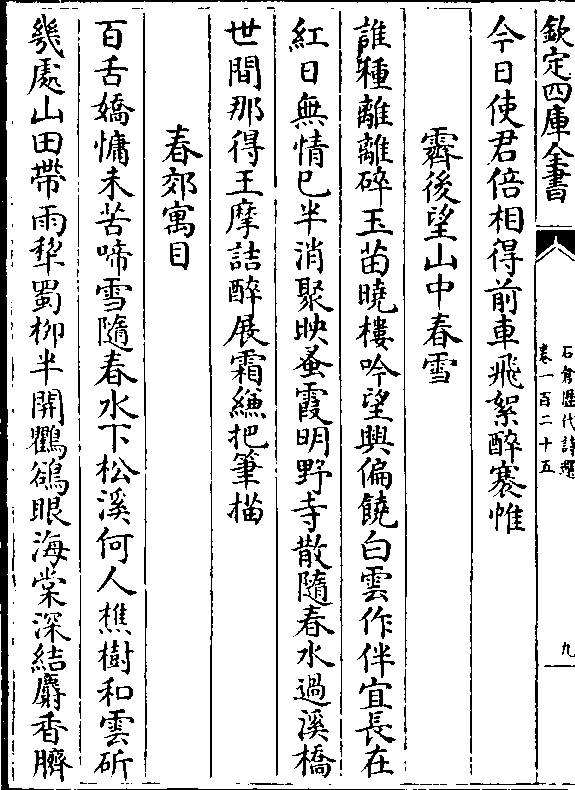 欽定四庫全書
石倉歷代詩選
卷一百二十五
九
今日使君倍相得前車飛絮醉褰帷
霽後望山中春雪
誰種離離碎玉苗曉樓吟望興偏饒白雲作伴宜長在
紅日無情已半消聚映蚤霞明野寺散隨春水過溪橋
世間那得王摩詰醉展霜縑把筆描
春郊寓目
百舌嬌慵未苦啼雪隨春水下松溪何人樵樹和雲斫
幾處山田帶雨犂蜀柳半開鸜鵒眼海棠深結麝香臍